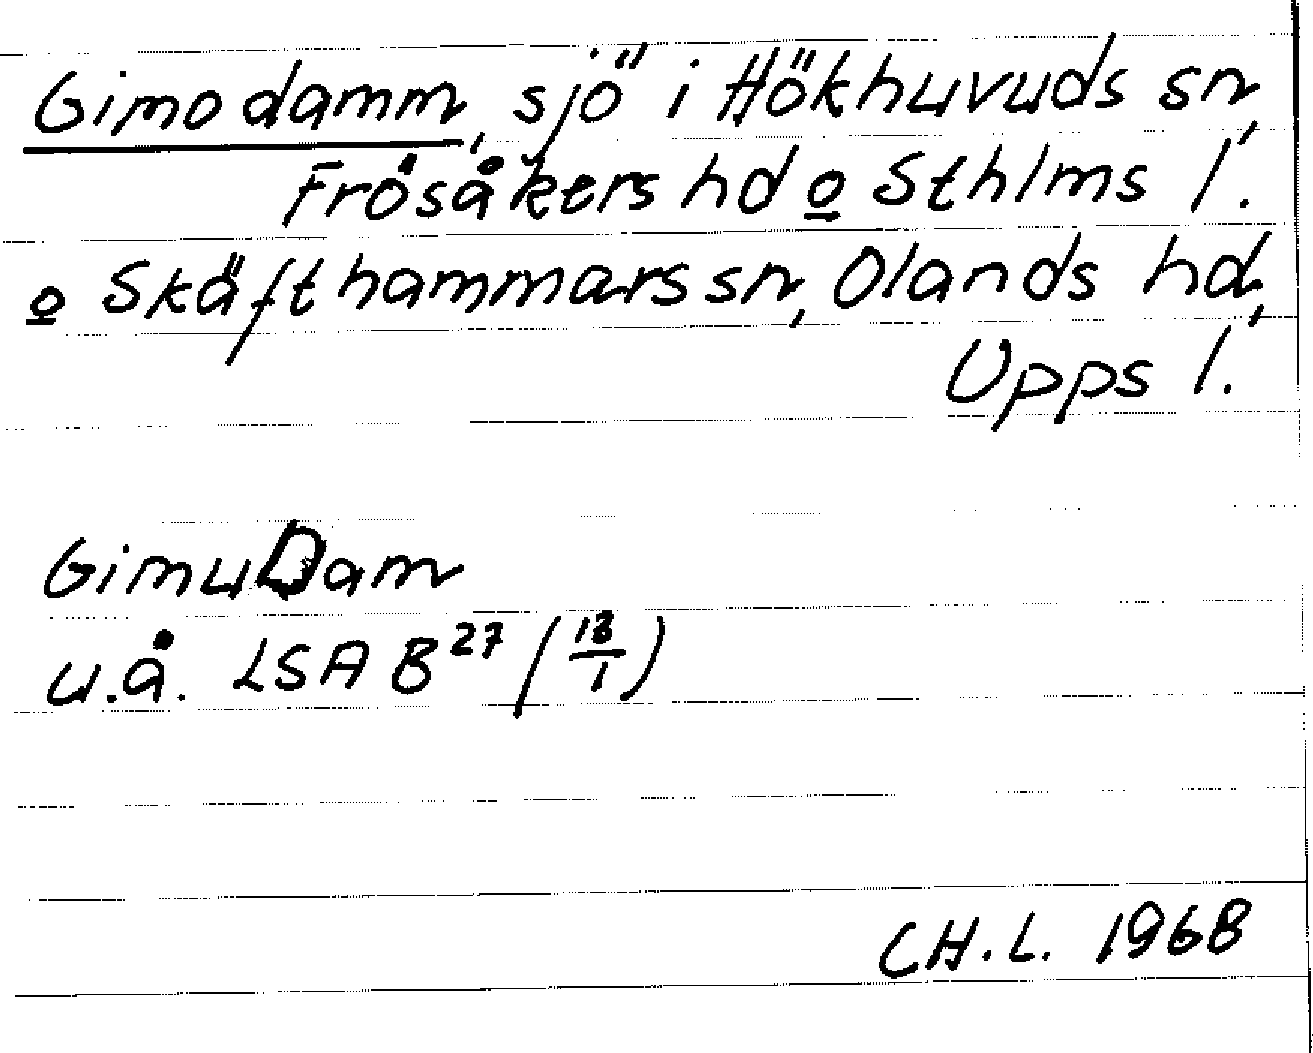 Gimo damm, sjö i Hökhuvuds sn,
Frösåkers hd o Sthlms l.
o Skäfthammars sn, Olands hd,
Upps l.
GimuDam
u.å. LSA B27 (13/1)
CH.L. 1968